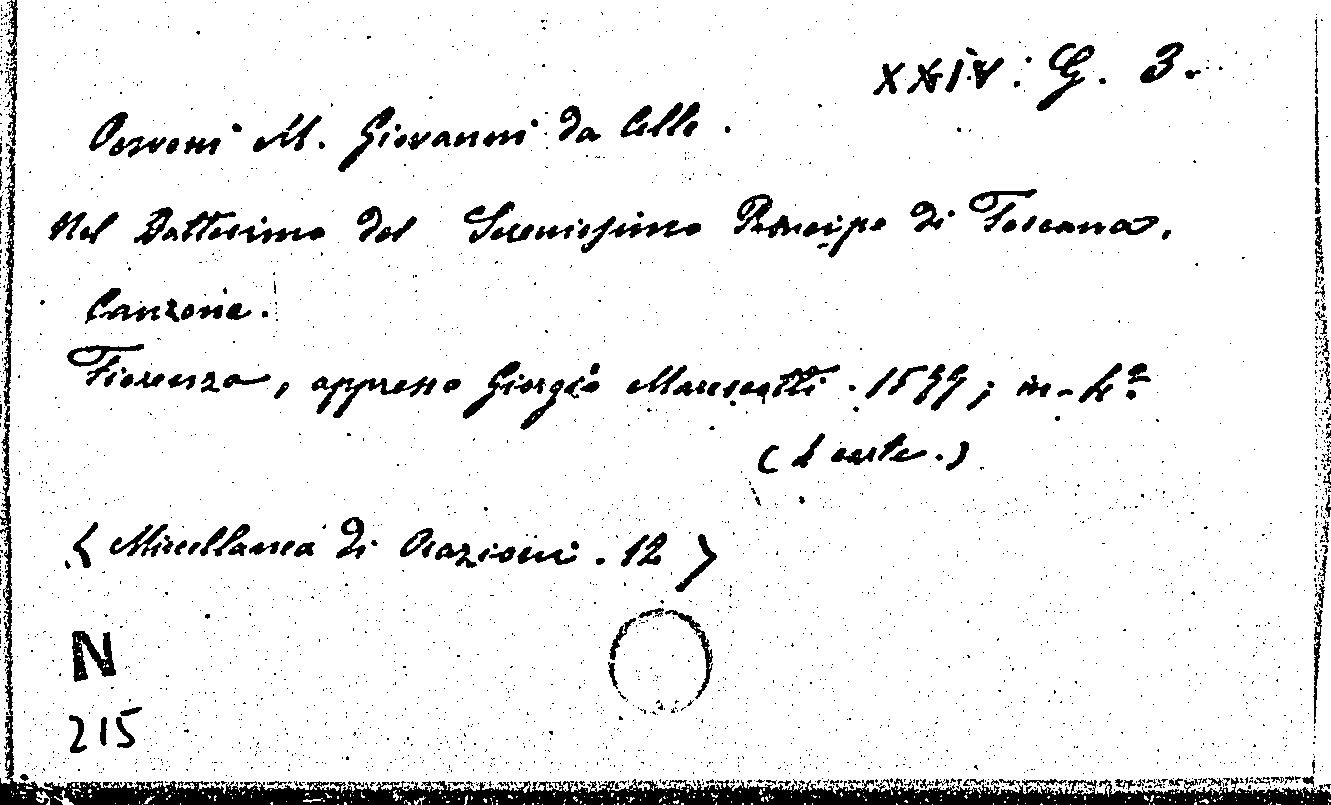 XXIV. G. 3.
Cervoni M. Giovanni da Colle.
Nel Battesimo del Serenissimo Principe di Toscana.
Canzone.
Fiorenza, appresso Giorgio Marescotti. 1577; in-4º
(4 carte.)
(Miscellanea di Orazioni. 12)
N
215